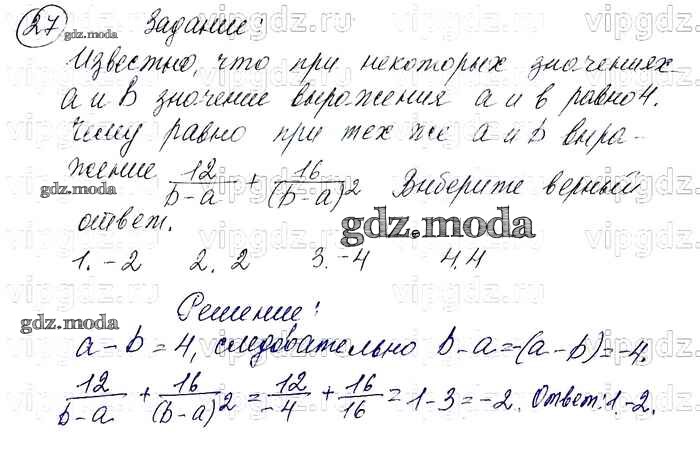 27 Задание:
Известно, что при некоторых значениях
a и b значение выражения a и b равно 4.
Чему равно при тех же a и b выра-
жение 12/(b-a) + 16/(b-a)2 Выберите верный
ответ.
1. -2 2. 2 3. -4 4. 4
Решение:
a-b=4, следовательно b-a=-(a-b)=-4.
12/(b-a) + 16/(b-a)2 = 12/-4 + 16/16 = 1-3=-2. Ответ: 1-2.
gdz.moda
gdz.moda
gdz.moda
gdz.moda
vipgdz.ru